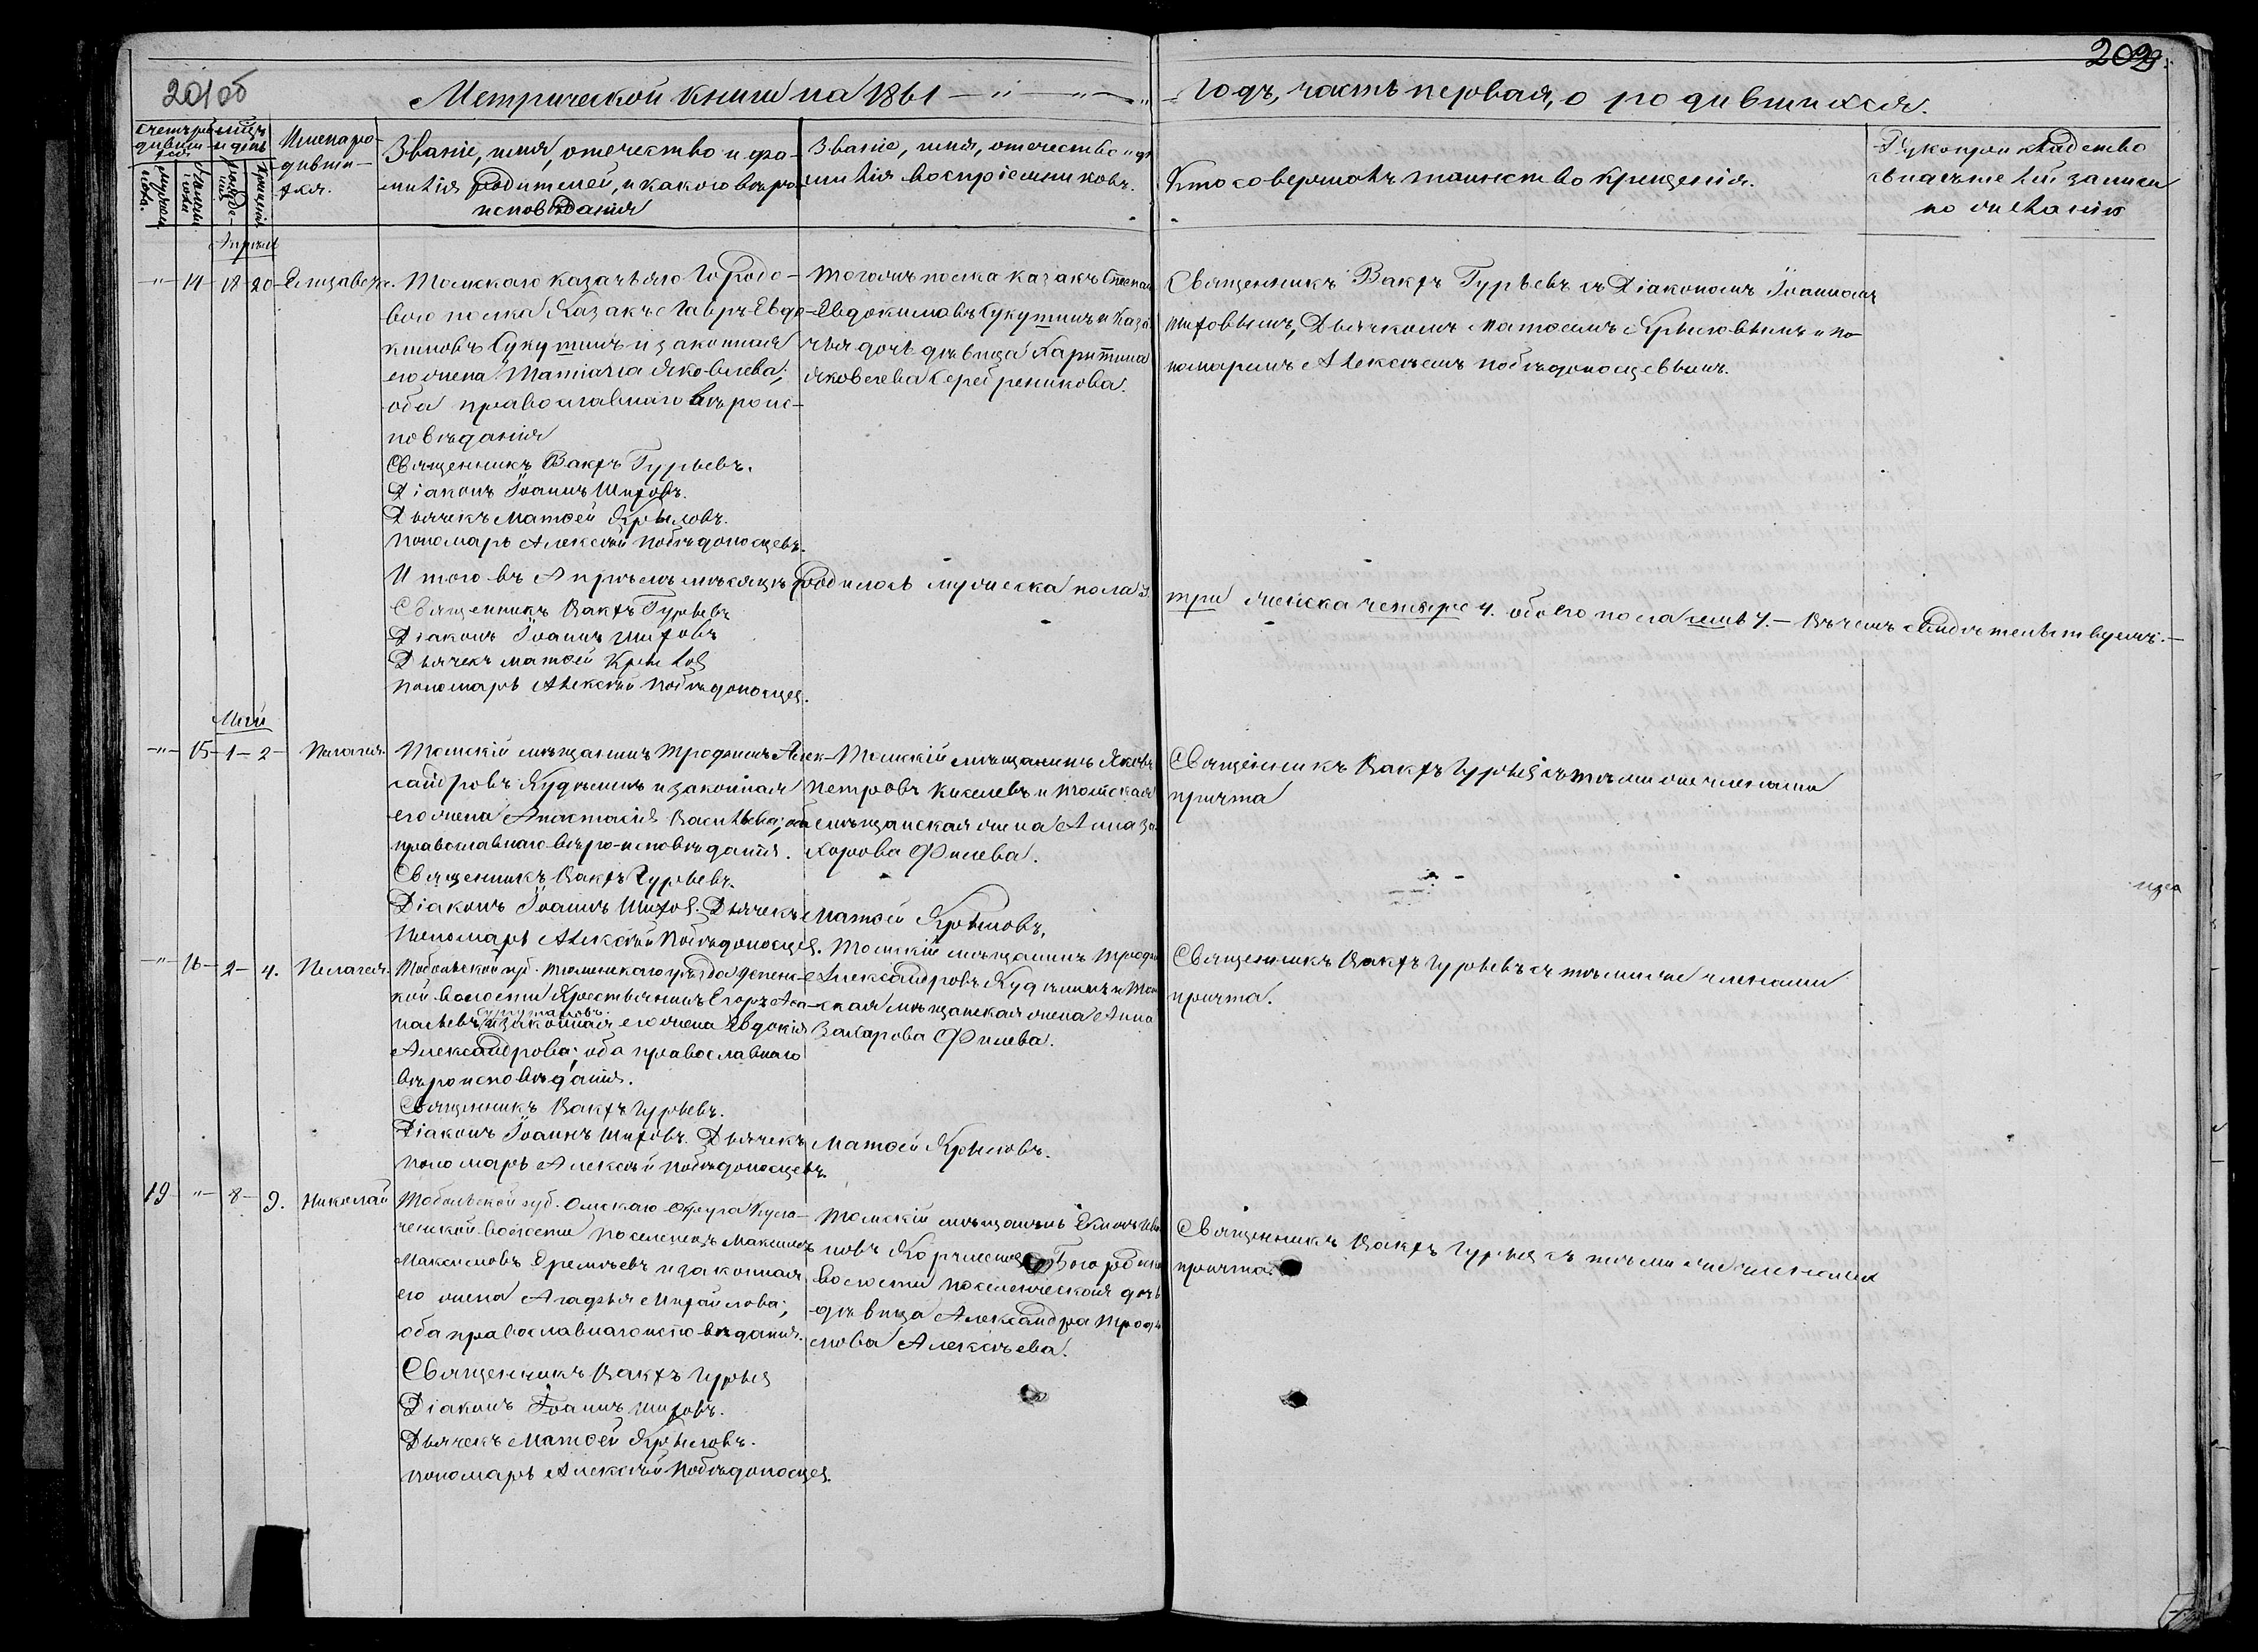 201об
202
Метрической книги на 1861
годъ, часть первая, о родившихся.
Счетъ родившихся
Мужеска пола.
Женска пола
Мѣсяцъ и день
Рожденія
Крещенія
Имена родившихся.
Званіе, имя, отечество и фамилія родителей, и какого вѣроисповѣданія
Званіе, имя, отечество и фамилія воспріемниковъ.
Кто совершалъ таинство крещенія.
Рукоприкладство свидѣтелей записи по желанію
Апрѣль
-"- 14 18 20 Елизавета.
Томскаго казачьяго Городо-
ваго полка Казакъ Гавріилъ Евдо-
кимовъ Сукутинъ и законная
его жена Татіана Яковлева;
оба православнаго вѣроис-
повѣданія
Священникъ Вакхъ Гурьевъ.
Діаконъ Іоаннъ Шиховъ.
Дьячекъ Матѳей Крыловъ.
Пономарь Алексѣй Побѣдоносцевъ.
Тогожъ полка казакъ Степанъ
Евдокимовъ Сукутинъ и Каза-
чья дочь дѣвица Харитина
Яковлева Серебреникова.
Священникъ Вакхъ Гурьевъ съ Діакономъ Іоанномъ
Шиховымъ, Дьячкомъ Матѳеемъ Крыловымъ и По-
номаремъ Алексѣемъ Побѣдоносцевымъ.
Итого въ Апрѣлѣ мѣсяцѣ родилось мужеска пола 3.
три женска четыре 4. обоего пола семь 7. — Въ чемъ свидѣтельствуемъ. —
Священникъ Вакхъ Гурьевъ
Діаконъ Іоаннъ Шиховъ
Дьячекъ Матѳей Крылов
Пономарь Алексѣй Побѣдоносцев.
Май
-"- 15 - 1 - 2 - Пелагея.
Томскій мѣщанинъ Трофимъ Алек-
сандровъ Кудринъ и законная
его жена Анастасія Васильева; оба
православнаго вѣро-исповѣданія.
Священникъ Вакхъ Гурьевъ.
Діаконъ Іоаннъ Шихов. Дьячекъ Матѳей Крыловъ.
Пономарь Алексѣй Побѣдоносцев.
Томскій мѣщанинъ Яковъ
Петровъ Киселевъ и Томская
мѣщанская жена Анна За-
харова Филева.
Священникъ Вакхъ Гурьев съ тѣми же членами
причта
-"- 16 - 2 - 4. Пелагея.
Тобольской губ. Тюменскаго уѣзда
кой волости Крестьянинъ Егоръ
и законная его жена Евдокія
Александрова; оба православнаго
вѣроисповѣданія.
Священникъ Вакхъ Гурьевъ.
Діаконъ Іоаннъ Шиховъ. Дьячекъ Матѳей Крыловъ.
Пономарь Алексѣй Побѣдоносцевъ.
Томскій мѣщанинъ Трофимъ
Александровъ Кудринъ и Том-
ская мѣщанская жена Анна
Захарова Филева.
Священникъ Вакхъ Гурьевъ съ тѣми же членами
причта.
19 - " - 8 - 9. Николай
Тобольской губ. Омскаго Округа
ской волости поселенецъ Максимъ
Максимовъ Еремѣевъ и законная
его жена Агафья Михайлова;
оба православнаго исповѣданія.
Священникъ Вакхъ Гурьев
Діаконъ Іоаннъ Шиховъ.
Дьячекъ Матѳей Крыловъ.
Пономарь Алексѣй Побѣдоносцев.
Томскій мѣщанинъ
волости поселенческая дочь
дѣвица Александра Трофи-
мова Алексѣева.
Священникъ Вакхъ Гурьев съ тѣми же членами
причта.